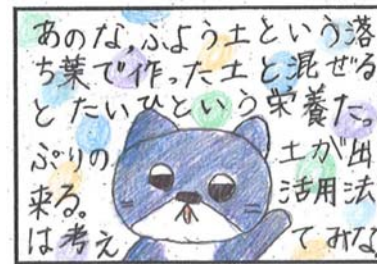 あのな,ふよう土という落
ち葉で作った土と混ぜる
とたいひという栄養たっ
ぷりの 土が出
来る。 活用法
は考え てみな